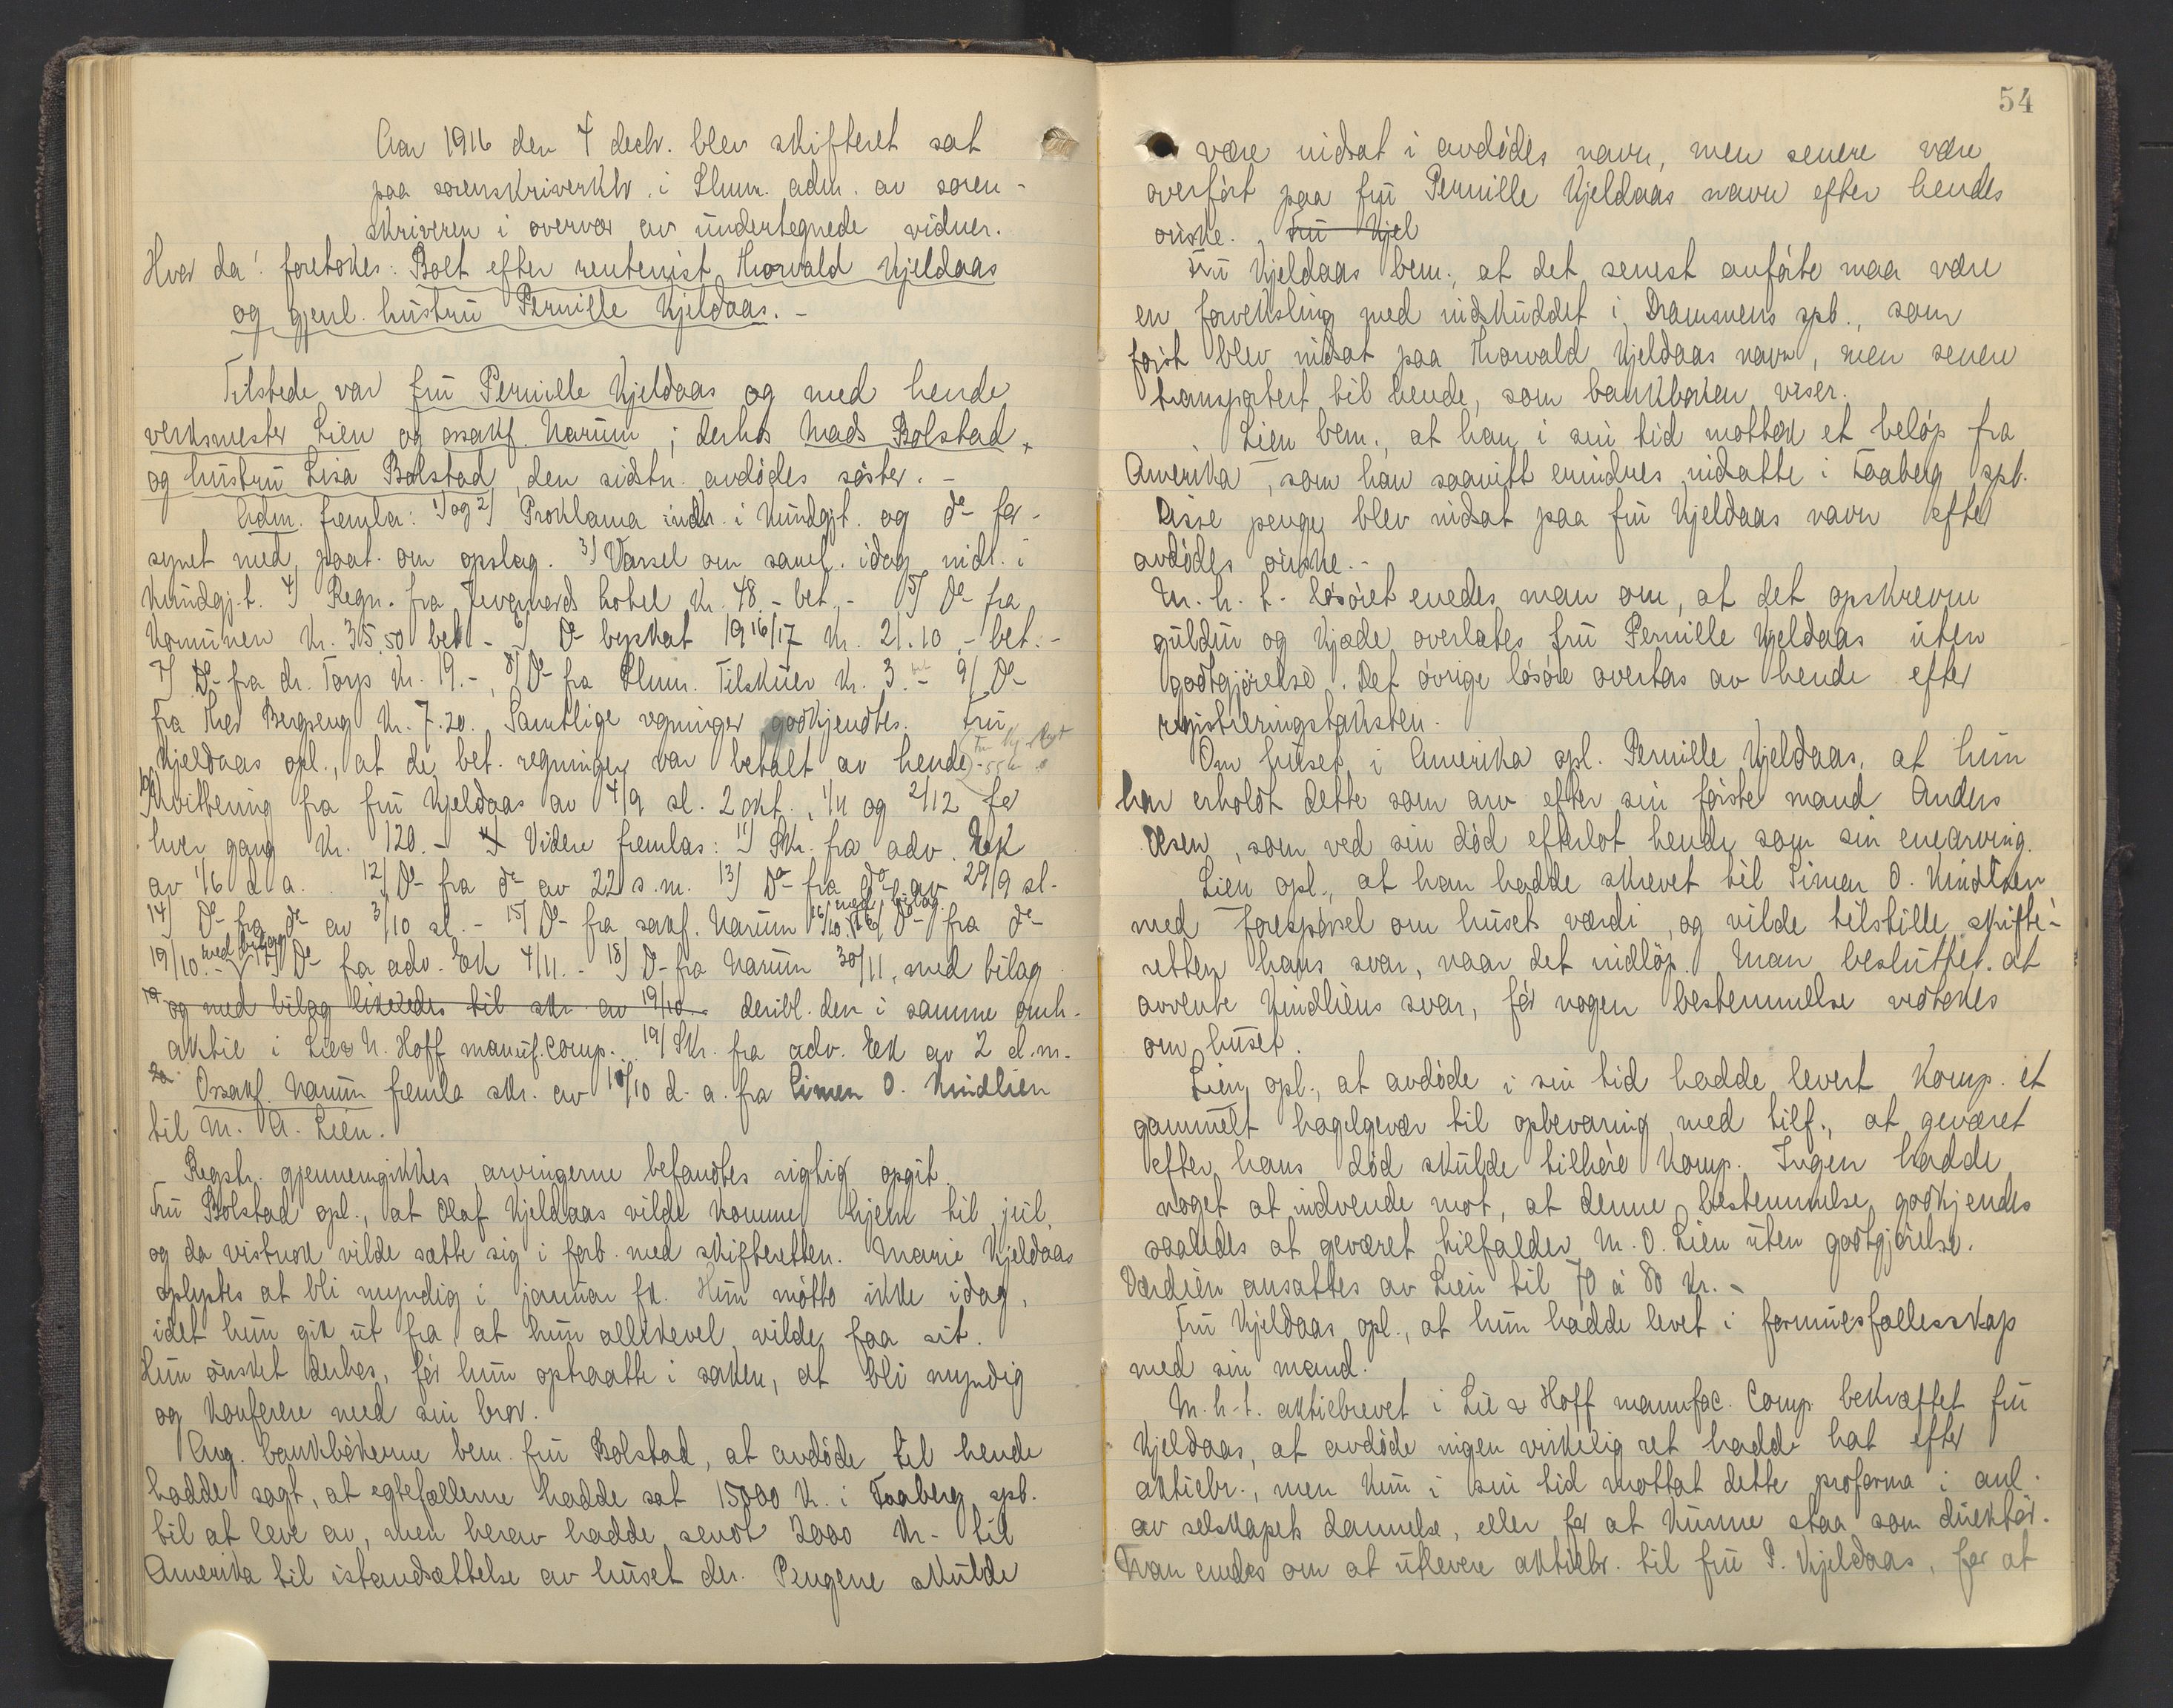 Aar 1916 den 7 decbr. blev skifteret sat
paa sorenskriverktr. i Lhmr. adm. av soren-
skriveren i overvær av undertegnede vidner.
Hvor da! foretokes: Boet efter rentenist Thorvald Kjeldaas
og gjenl. hustru Pernille Kjeldaas. -
Tilstede var fru Pernille Kjeldaas og med hende
verksmester Lien og ossakf. Narum; derhos Mads Bolstad
og hustru Lisa Bolstad, den sidstn. avdødes søster. -
Adm. fremla: 1) og 2) Proklama indr. i Kundgjt. og do for-
synet med paat. om opslag. 3) Varsel om saml. idag indt. i
Kundgj.t. 4) Regn. fra Jevanords hotel Kr. 48. - bet. - 5) Do fra
Komunen Kr. 315,50 bet. - 6) Do byskat 1916/17 Kr. 21.10. - bet. -
7) Do fra dr. Torp Kr. 19. -, 8) Do fra Lhmr. Tilskuer Kr. 3. - 9) Do
fra Thor Bergseng Kr. 7.20. Samtlige regninger godkjendtes. Fru
Kjeldaas opl., at de bet. regninger var betalt av hende.
10) Kvittering fra fru Kjeldaas av 4/9 sl. 2 okt., 1/11 og 2/12 for
hver gang Kr. 120. - Videre fremlas: 11) Skr. fra adv. Eek
av 1/6 d. a. 12) Do fra do av 22 s. m. 13) Do fra do av 29/9 sl. -
14) Do fra do av 3/10 sl. - 15) Do fra sakf. Narum 16/10. med bilag 16) Do fra do
19/10. - med bilag 17) Do fra adv. Eek 4/11. - 18) Do fra Narum 30/11, med bilag
og med bilag likeledes til skr. av 19/10. deribl. den i samme omh.
aktie i Lie & N. Hoff manuf. Comp. 19) Skr. fra adv. Eek av 2 d.m. -
20 Ossakf. Narum fremla skr. av 18/10 d. a. fra Simen O. Kindlien
til M. A. Lien.
Regstr. gjennemgikkes arvingerne befandtes rigtig opgit.
Fru Bolstad opl., at Olaf Kjeldaas vilde komme hjem til jul,
og da vistnok vilde sætte sig i forb. med skifteretten. Marie Kjeldaas
oplystes at bli myndig i januar fk. Hun møtte ikke idag,
idet hun gik ut fra, at hun allikevel vilde faa sit.
Hun ønsket derhos, før hun optraatte i saken, at bli myndig
og konferere med sin bror.
Ang. bankbøkerne bem. fru Bolstad, at avdøde til hende
hadde sagt, at egtefællerne hadde sat 15000 Kr. i Faaberg spb.
til at leve av, men herav hadde sendt 2000 Kr. - til
Amerika til istandsættelse av huset der. Pengene skulde
54
være indsat i avdødes navn, men senere være
overført paa fru Pernille Kjeldaas navn efter hendes
ønske. Fru Kjel
Fru Kjeldaas bem., at det senest anførte maa være
en forveksling med indskuddet i Drammens spb., som
først blev indsat paa Thorvald Kjeldaas navn, men senere
transportert til hende, som bankboken viser.
Lien bem., at han i sin tid mottok et beløp fra
Amerika, som han saavitt erindres indsatte i Faaberg spb.
Disse penge blev indsat paa fru Kjeldaas navn efter
avdødes ønske. -
M. h. t. løsøret enedes man om, at det opskrevne
guldur og kjæde overlates fru Pernille Kjeldaas uten
godtgjørelse. Det øvrige løsøre overtas av hende efter
registreringstaksten.
Om huset i Amerika opl. Pernille Kjeldaas, at hun
har erholdt dette som arv efter sin første mand Anders
Olsen, som ved sin død efterlot hende som sin enearving.
Lien opl., at han hadde skrevet til Simen O. Kindlien
med forespørsel om husets værdi, og vilde tilstille skifte-
retten hans svar, naar det indløp. Man besluttet at
avvente Kindliens svar, før nogen bestemmelse vedtokes
om huset.
Lien opl., at avdøde i sin tid hadde levert komp. et
gammelt haglgevær til opbevaring med tilf., at geværet
efter hans død skulde tilhøre komp. Ingen hadde
noget at indvende mot, at denne bestemmelse godkjendes
saaledes at geværet tilfalder M. O. Lien uten godtgjørelse.
Værdien ansattes av Lien til 70 à 80 Kr. -
Fru Kjeldaas opl., at hun hadde levet i formuesfællesskap
med sin mand.
M. h. t. aktiebrevet i Lie & Hoff manufac. Comp. bekræftet fru
Kjeldaas, at avdøde ingen virkelig ret hadde hat efter
aktiebr., men kun i sin tid mottat dette proforma i anl.
av selskapets dannelse, eller for at kunne staa som direktør.
Man enedes om at utlevere aktiebr. til fru P. Kjeldaas, for at